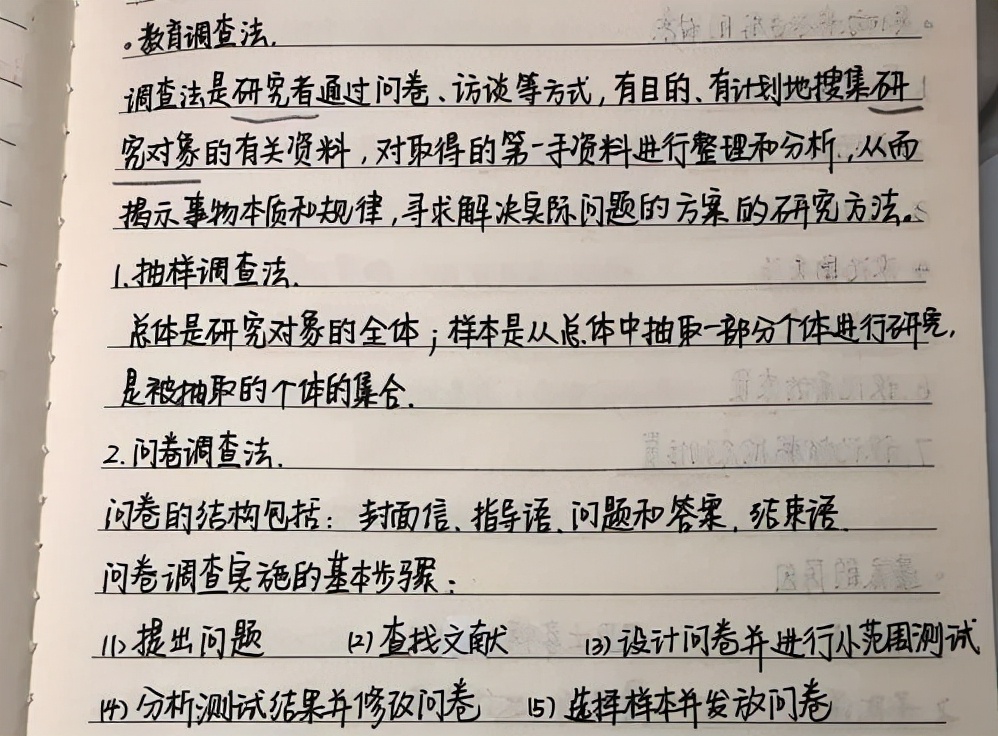 。教育调查法.
调查法是研究者通过问卷、访谈等方式,有目的、有计划地搜集研
究对象的有关资料,对取得的第一手资料进行整理和分析.,从而
揭示事物本质和规律,寻求解决实际问题的方案的研究方法。
1.抽样调查法.
总体是研究对象的全体;样本是从总体中抽取一部分个体进行研究,
是被抽取的个体的集合.
2.问卷调查法.
问卷的结构包括: 封面信、指导语、问题和答案、结束语.
问卷调查实施的基本步骤:
(1)提出问题 (2)查找文献 (3)设计问卷并进行小范围测试
(4)分析测试结果并修改问卷 (5)选择样本并发放问卷